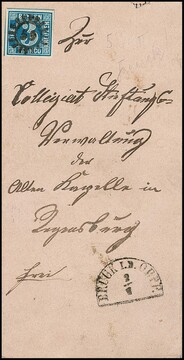 Zur
Collegiat Stiftungs-
Verwaltung
der
Alten Kapelle in
Regensburg
frei
BRUCK I.D. OBPF.
2/6